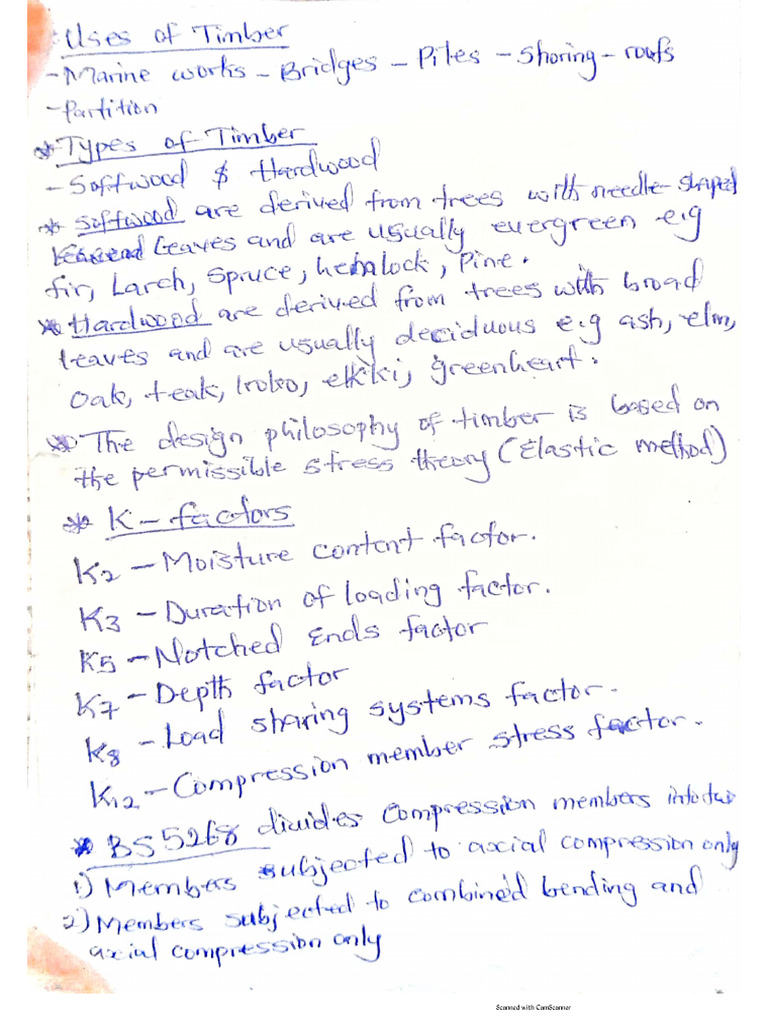 Uses of Timber
- Marine works - Bridges - Piles - Shoring - roofs
- Partition
* Types of Timber
- Softwood & Hardwood
* Softwood are derived from trees with needle-shaped
leaves and are usually evergreen e.g
fir, Larch, Spruce, hemlock, Pine.
* Hardwood are derived from trees with broad
leaves and are usually deciduous e.g ash, elm,
oak, teak, Iroko, ekki, greenheart.
* The design philosophy of timber is based on
the permissible stress theory (Elastic method)
* K-factors
K2 - Moisture content factor.
K3 - Duration of loading factor.
K5 - Notched Ends factor
K7 - Depth factor
K8 - Load sharing systems factor.
K12 - Compression member stress factor.
* BS 5268 divides compression members into two
1) Members subjected to axial compression only
2) Members subjected to combined bending and
axial compression only
Scanned with CamScanner